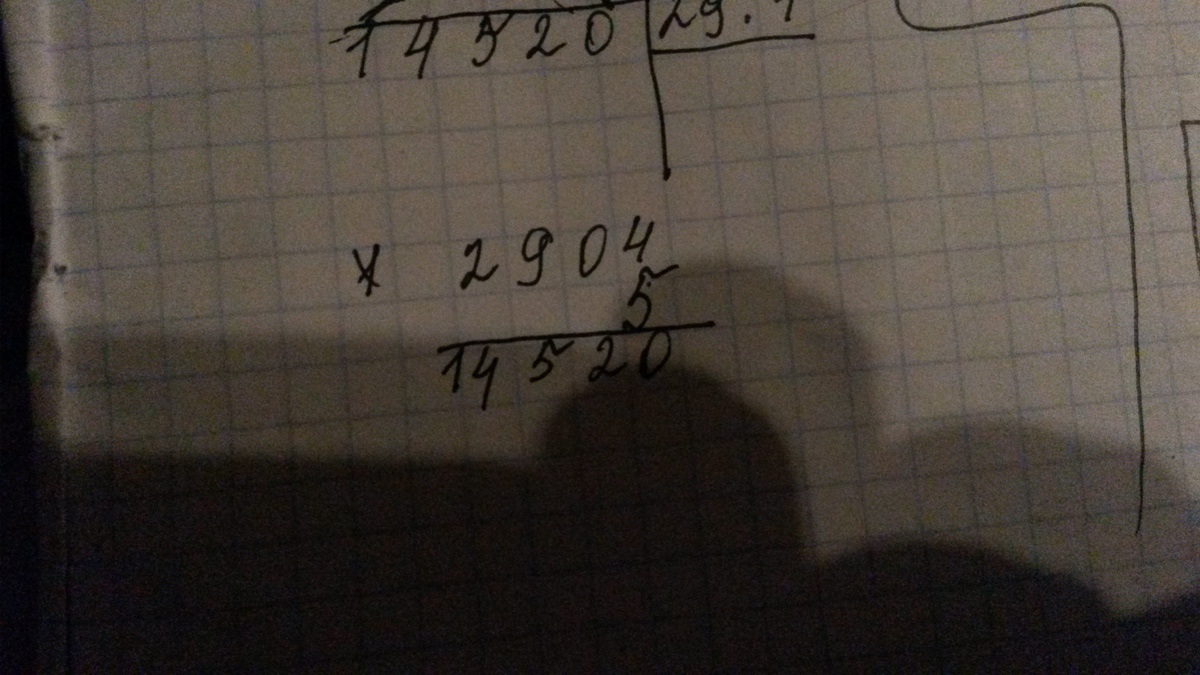 14520
× 2904
5
14520